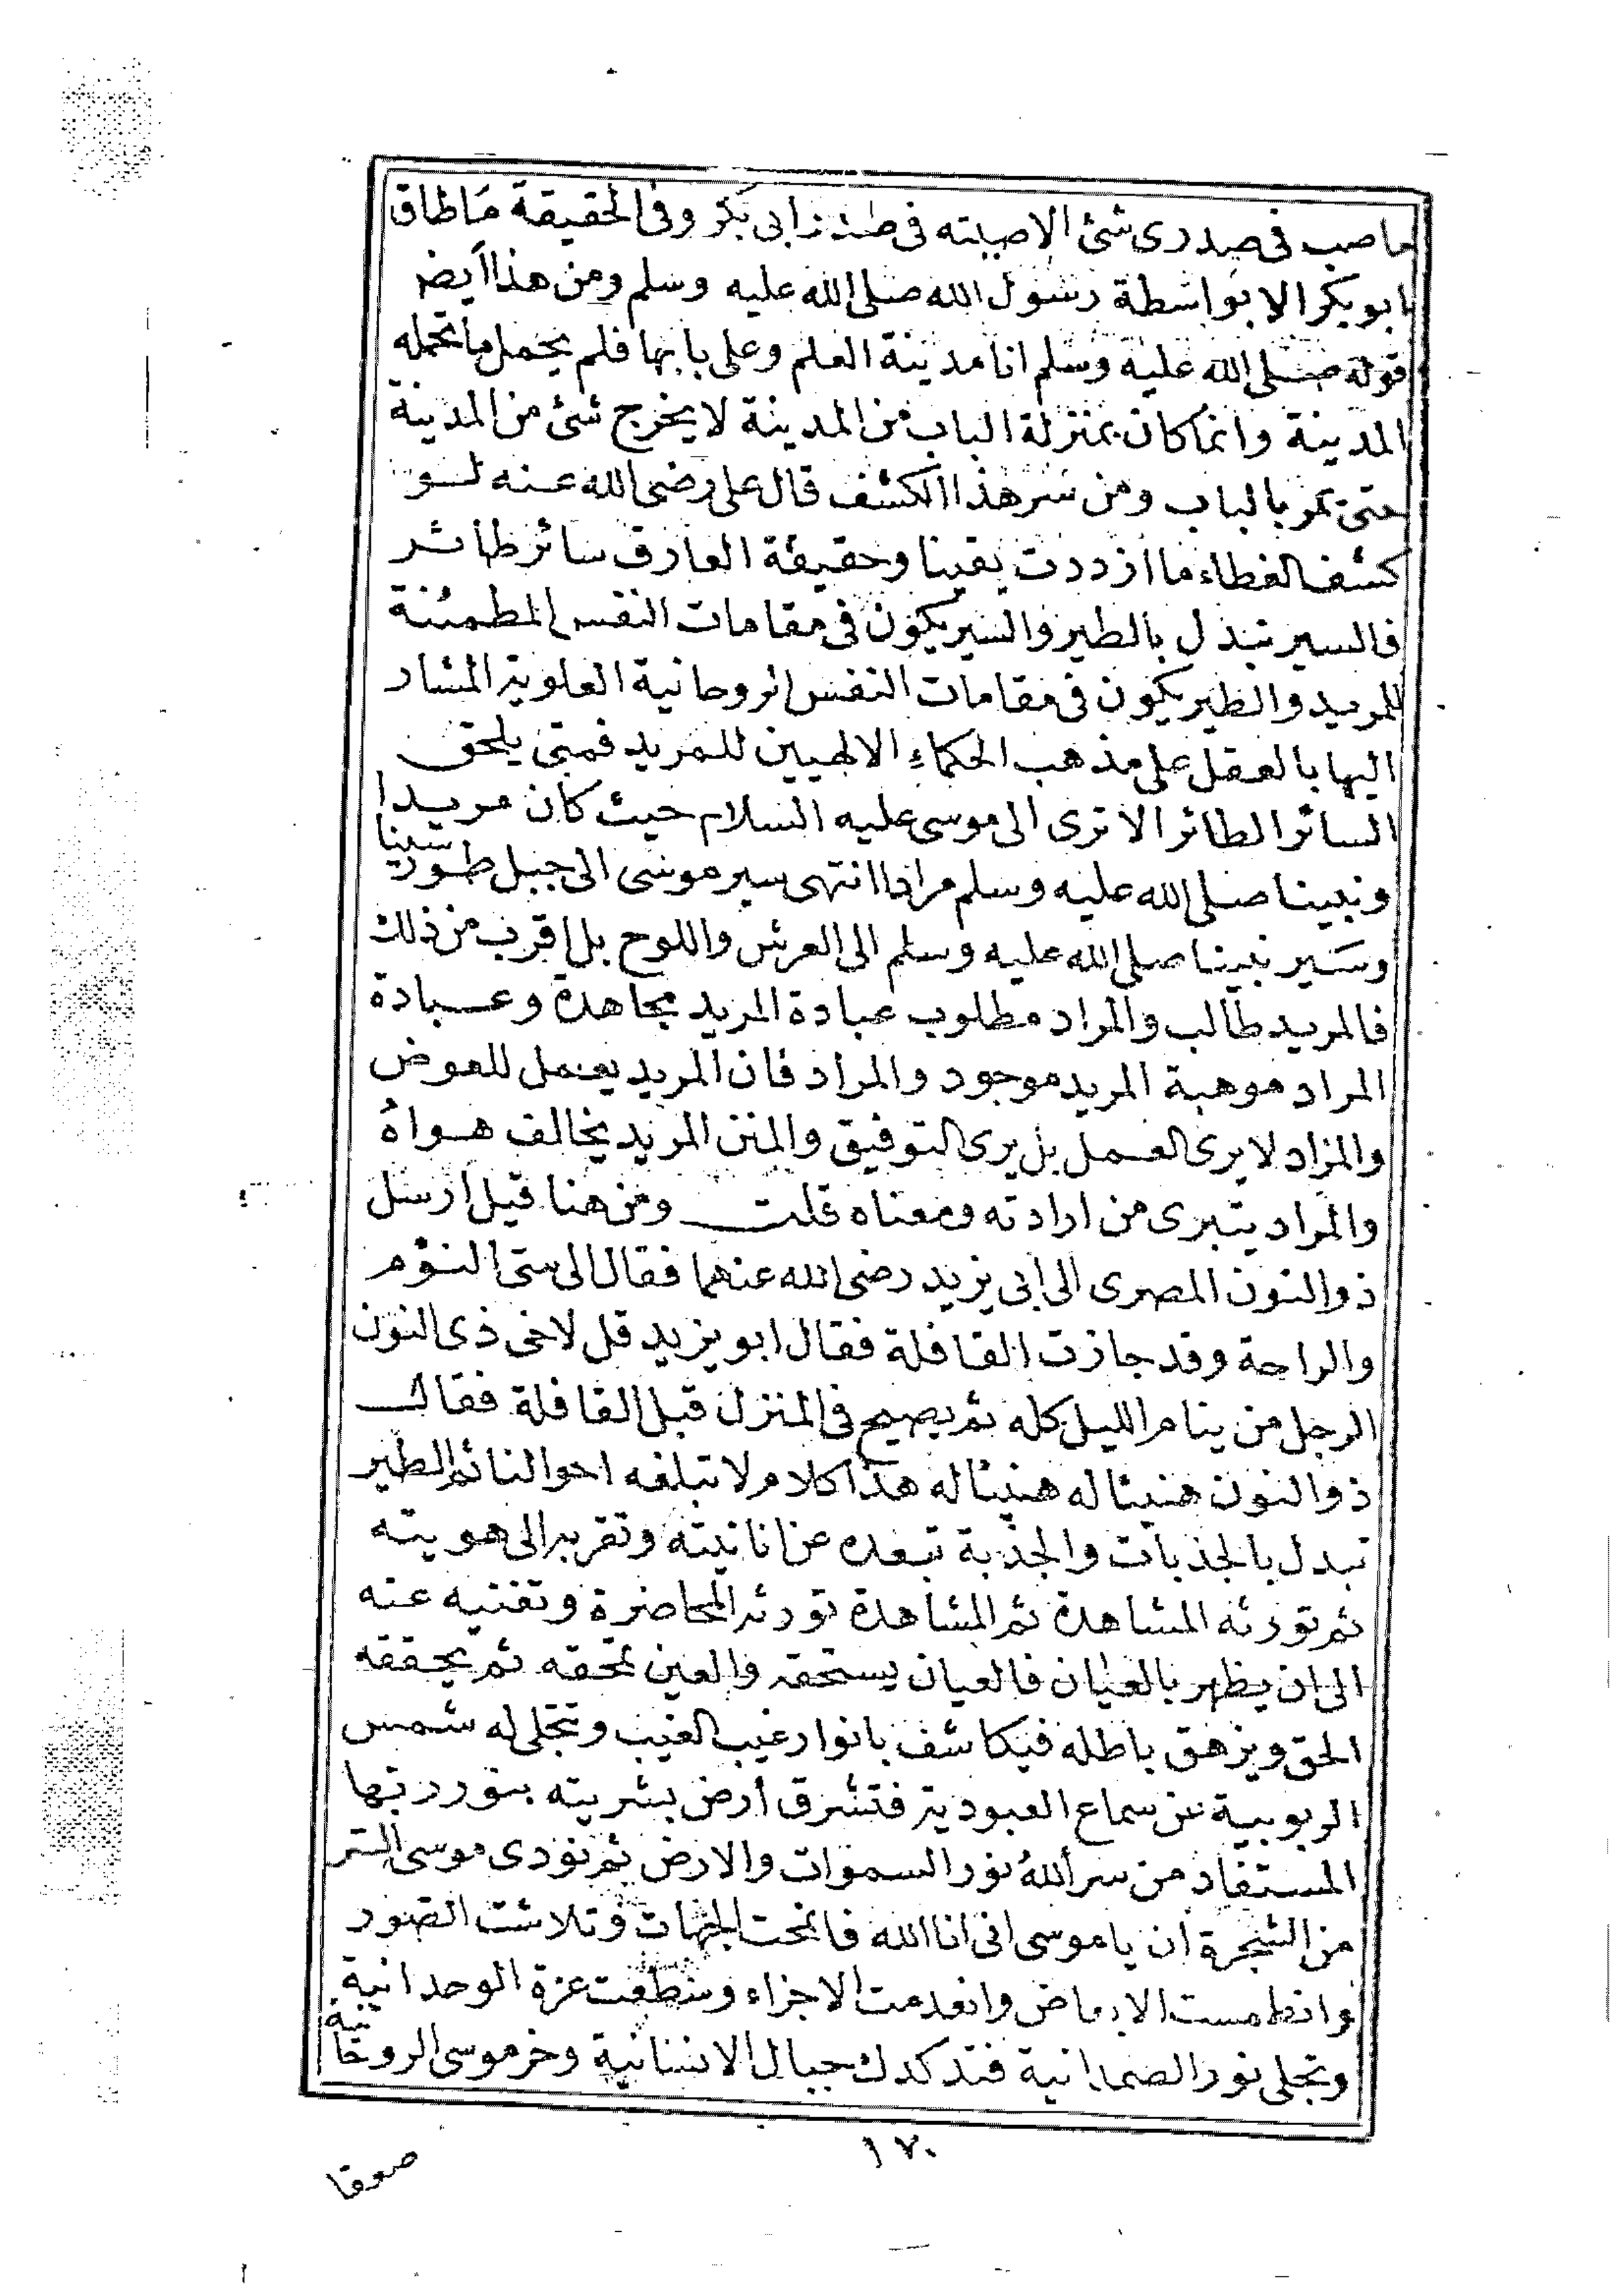 ما صب فى صدرى شئ الا صببته فى صدر ابى بكر وفى الحقيقة ما طاق
ابو بكر الا بواسطة رسول الله صلى الله عليه وسلم ومن هذا ايض
قوله صلى الله عليه وسلم انا مدينة العلم وعلى بابها فلم يحمل ما تحمله
المدينة وانما كان بمنزلة الباب من المدينة لا يخرج شئ من المدينة
حتى يمر بالباب ومن سر هذا الكشف قال على رضى الله عنه لو
كشف الغطاء ما ازددت يقينا وحقيقة العارف سائر طائر
فالسير تبدل بالطير والسير يكون فى مقامات النفس المطمئنة
للمريد والطير يكون فى مقامات النفس الروحانية العلوية المشار
اليها بالعقل على مذهب الحكماء الالهيين للمريد فمتى يلحق
السائر الطائر الا ترى الى موسى عليه السلام حيث كان مريدا
ونبينا صلى الله عليه وسلم مرادا انتهى سير موسى الى جبل طور سينا
وسير نبينا صلى الله عليه وسلم الى العرش واللوح بل اقرب من ذلك
فالمريد طالب والمراد مطلوب عبادة المريد مجاهدة وعبادة
المراد موهبة المريد موجود والمراد فان المريد يعمل للعوض
والمراد لا يرى العمل بل يرى التوفيق والمنن المريد يخالف هواه
والمراد يتبرى من ارادته ومعناه قلت ومن هنا قيل ارسل
ذو النون المصرى الى ابى يزيد رضى الله عنهما فقال الى متى النوم
والراحة وقد جازت القافلة فقال ابو يزيد قل لاخى ذى النون
الرجل من ينام الليل كله ثم يصبح فى المنزل قبل القافلة فقال
ذو النون هنيئا له هنيئا له هذا كلام لا تبلغه احوالنا ثم الطير
تبدل بالجذبات والجذبة تبعده عن انانيته وتقربه الى هويته
ثم تورثه المشاهدة ثم المشاهدة تورثه المحاضرة وتفنيه عنه
الى ان يظهر بالعيان فالعيان يستحقه والعين تمحقه ثم يحققه
الحق ويزهق باطله فيكاشف بانوار غيب الغيب وتجلى له شمس
الربوبية عن سماع العبودية فتشرق أرض بشريته بنور ربها
المستفاد من سر الله نور السموات والارض ثم نودى موسى السر
من الشجرة ان يا موسى انى انا الله فانمحت الجهات وتلاشت الصور
وانطمست الابعاض وانعدمت الاجزاء وسطعت عزة الوحدانية
وتجلى نور الصمدانية فتدكدك جبال الانسانية وخر موسى الروحانية
١٧٠
صعقا